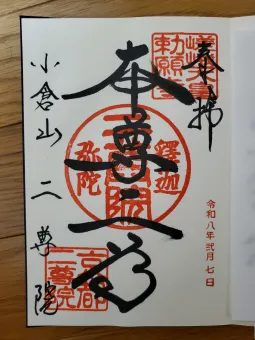 奉拝
令和八年弐月七日
勅願
本尊二尊
釋迦
弥陀
小倉山 二尊院
京都
二尊院